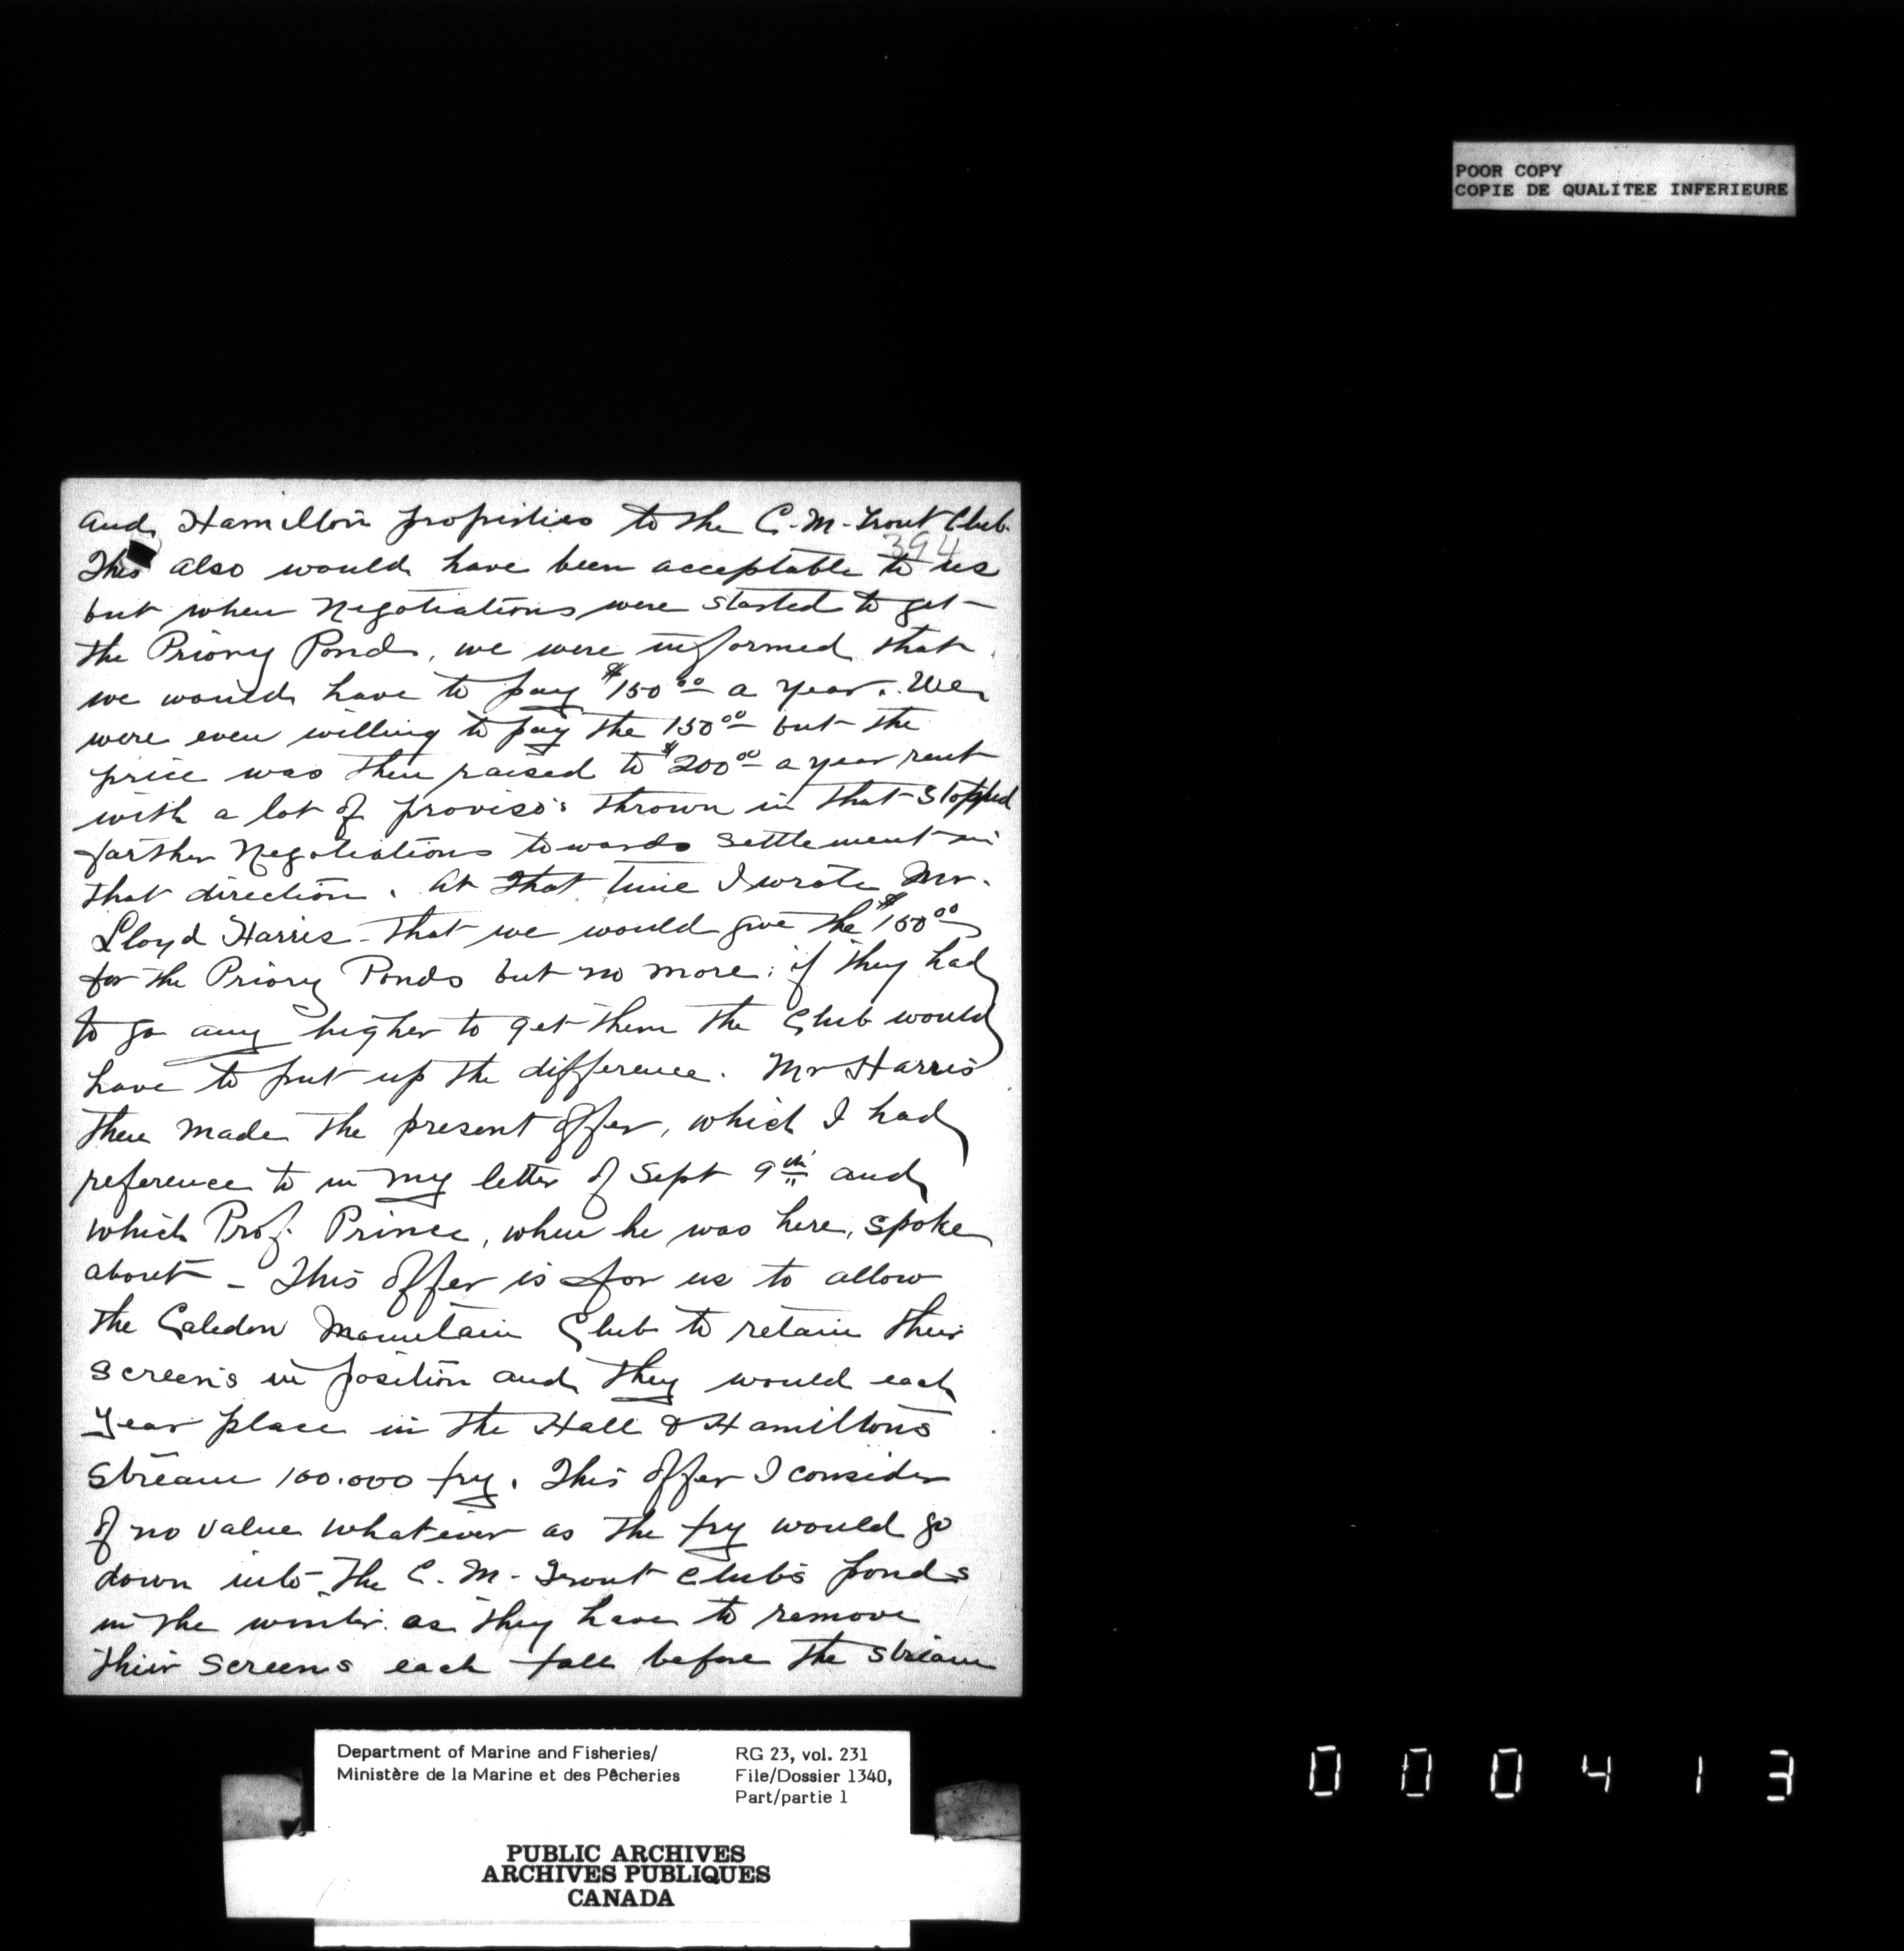 POOR COPY
COPIE DE QUALITEE INFERIEURE
and Hamilton properties to the C-M-Trout Club.
394
This also would have been acceptable to us
but when negotiations were started to get
the Priory Pond, we were informed that
we would have to pay $150.00 a year. We
were even willing to pay the 150.00 but the
price was then raised to $200.00 a year rent
with a lot of proviso's thrown in that stopped
farther negotiations towards settlement in
that direction. At that time I wrote Mr.
Lloyd Harris - that we would give the $150.00
for the Priory Ponds but no more: if they had
to go any higher to get them the Club would
have to put up the difference. Mr Harris
then made the present offer, which I had
reference to in my letter of Sept 9th and
which Prof. Prince, when he was here, spoke
about - This offer is for us to allow
the Caledon Mountain Club to retain their
screens in position and they would each
year place in the Hall & Hamiltons
stream 100.000 fry. This offer I consider
of no value whatever as the fry would go
down into the C. M. Trout Club's ponds
in the winter as they have to remove
their screens each fall before the stream
Department of Marine and Fisheries/
Ministère de la Marine et des Pêcheries
RG 23, vol. 231
File/Dossier 1340,
Part/partie 1
PUBLIC ARCHIVES
ARCHIVES PUBLIQUES
CANADA
000413